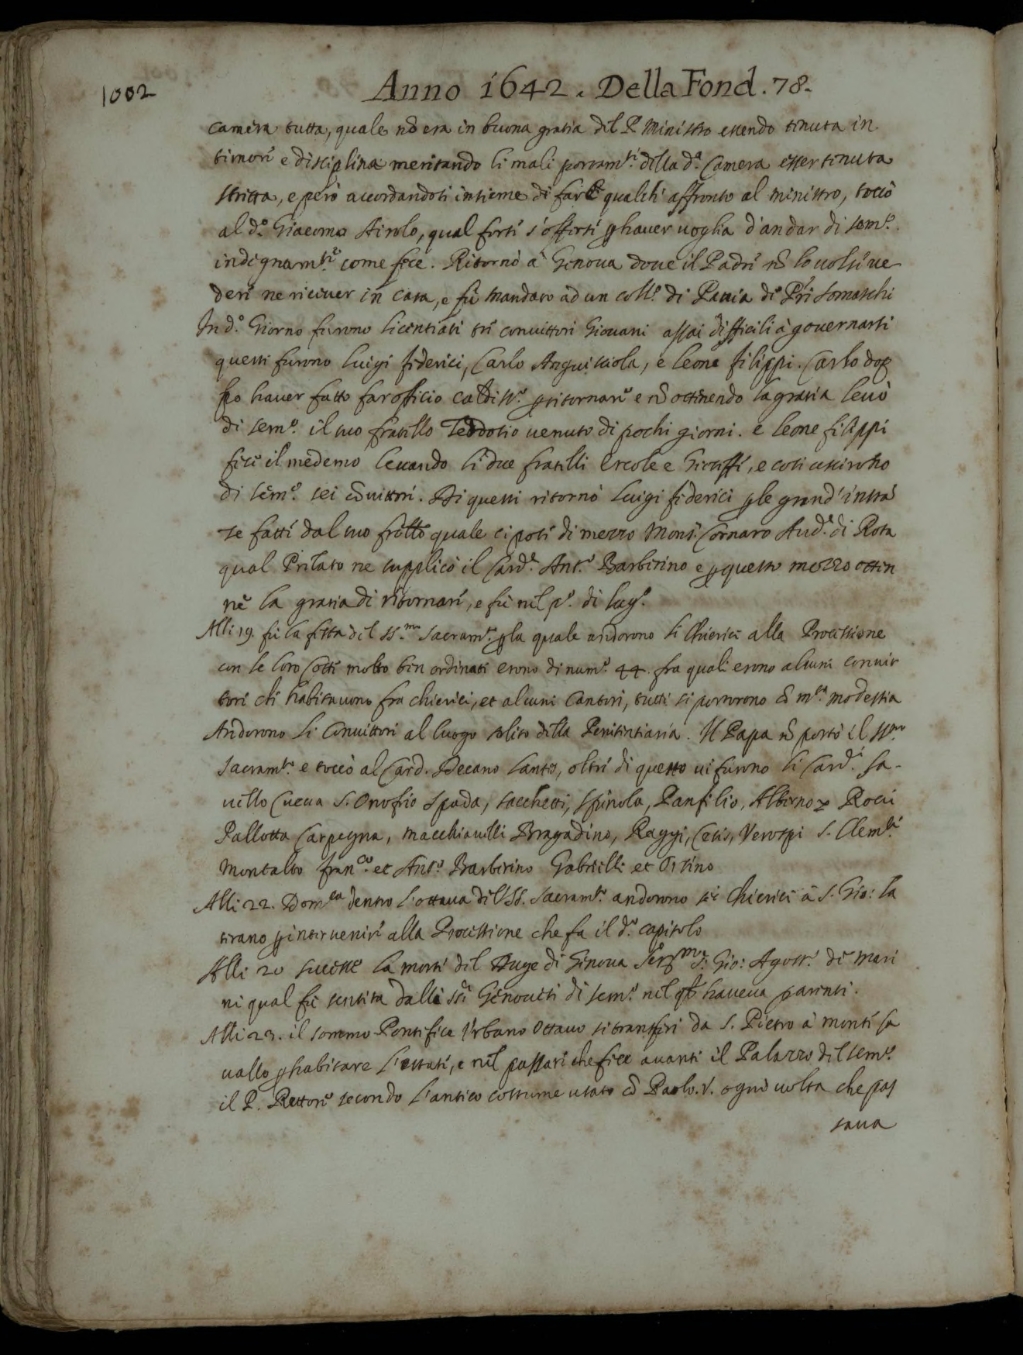 1002
Anno 1642. Della Fond. 78.
camera tutta, quale nō era in buona gratia del P. Ministro essendo tenuta in
timore e disciplina meritando li mali portam.ti della d.a Camera esser tenuta
stretta, e però accordandosi insieme di far qualch' affronto al ministro, toccò
al d.o Giacomo Airolo, qual forsi s'offerse p hauer uoglia d'andar di sem.o
indegnam.te come fece. Ritornò à Genoua doue il Padre nō lo uolse ue
dere ne riceuer in casa, e fù mandato ad un coll.o di Pauia de Pri Somaschi
In d.o Giorno furono licentiati tre conuittori Giouani assai difficili à gouernarsi
questi furono Luigi federici, Carlo Anguissola, e Leone filippi. Carlo dop
po hauer fatto far officio p ritornare e nō ottenendo la gratia leuò
di sem.o il suo fratello Teodosio uenuto di pochi giorni. e Leone filippi
fece il medemo leuando li due fratelli Ercole e Giuseffe, e così uscirono
di sem.o sei cōuittori. Di questi ritornò Luigi federici p le grand' instā
ze fatte dal suo frēllo quale ci pose di mezzo Mons. Cornaro Aud.e di Rota
qual Prelato ne supplicò il Card.e Ant.o Barberino e p questo mezzo otten
ne la gratia di ritornare, e fù nel p.o di lug.o
Alli 19 fù la festa del SS.mo Sacram.to p la quale andorono li Chierici alla Processione
con le loro cotte molto ben ordinati erono di num.o 44. fra quali erono alcuni conuit
tori che habitauono fra chierici, et alcuni Cantori, tutti si portorono cō m.ta modestia
Andorono li Conuittori al luogo solito della Penitentiaria. Il Papa nō portò il SS.mo
Sacram.to e toccò al Card. Decano Lante, oltre di questo ui furono li Card.i Sa-
uello Cueua S. Onofrio Spada, Sacchetti, Spinola, Panfilio, Albornoz Rocci
Pallotta Carpegna, Macchiauelli Bragadino, Raggi, Cesis, Verospi S. Clem.te
Montalto fran.co et Ant.o Barberino Gabrielli et Orsino
Alli 22. Dom.ca dentro l'ottaua del SS. Sacram.to andorono li Chierici à S. Gio: La
terano p interuenire alla Processione che fa il d.o capitolo
Alli 20 successe la morte del Duge di Genoua Ser.mo Gio: Agost.o de Mari
ni qual fù sentita dalli Genouesi di sem.o nel haueua parenti.
Alli 23. il sommo Pontefice Vrbano Ottauo si transferì da S. Pietro à monte Ca
uallo p habitare l'estate, e nel passare che fece auanti il Palazzo del sem.o
il P. Rettore secondo l'antico costume usato cō Paolo V. ogni uolta che pas
saua